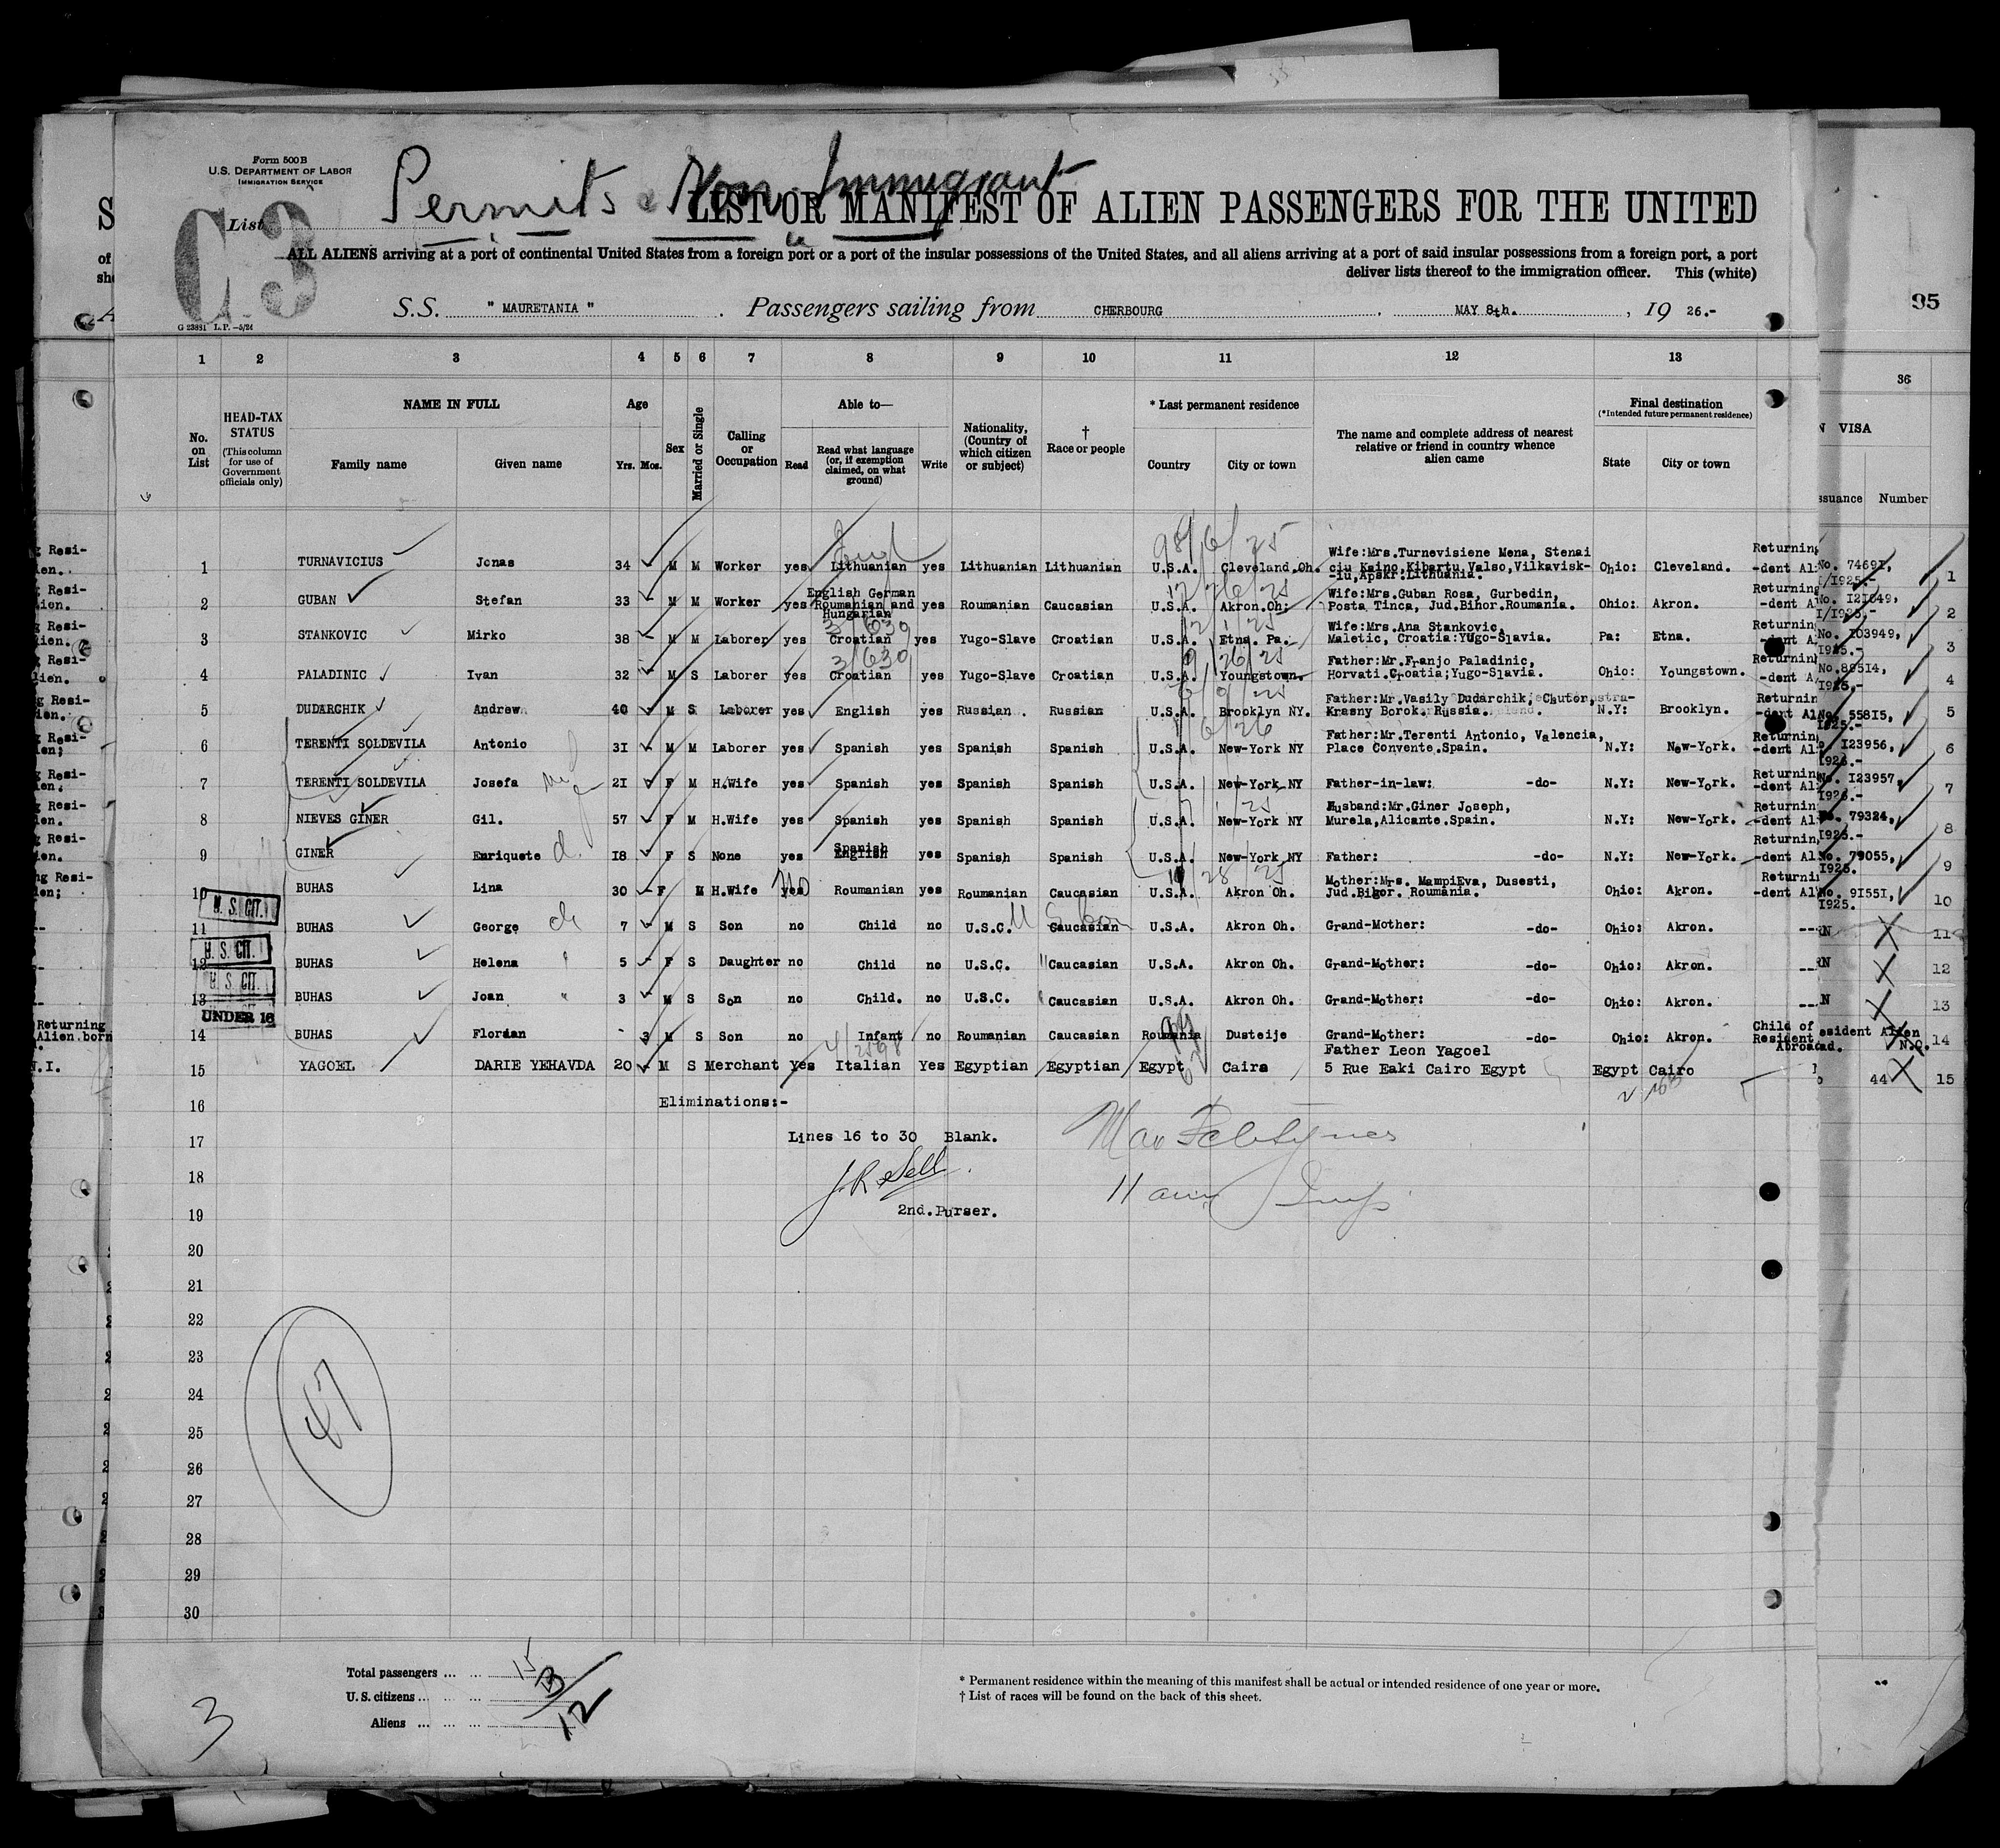 Form 500B
U.S. DEPARTMENT OF LABOR
IMMIGRATION SERVICE
Permits Non Immigrant
C3
List
LIST OR MANIFEST OF ALIEN PASSENGERS FOR THE UNITED
ALL ALIENS arriving at a port of continental United States from a foreign port or a port of the insular possessions of the United States, and all aliens arriving at a port of said insular possessions from a foreign port, a port
deliver lists thereof to the immigration officer. This (white)
S.S. "MAURETANIA" . Passengers sailing from CHERBOURG , MAY 8th. , 19 26.-
G 23881 L.P. -5/24
95
1 2 3 4 5 6 7 8 9 10 11 12 13 36
No. on List
HEAD-TAX STATUS
(This column for use of Government officials only)
NAME IN FULL
Family name Given name
Age
Yrs. Mos.
Sex
Married or Single
Calling or Occupation
Able to—
Read
Read what language (or, if exemption claimed, on what ground)
Write
Nationality, (Country of which citizen or subject)
† Race or people
* Last permanent residence
Country City or town
The name and complete address of nearest relative or friend in country whence alien came
Final destination
(*Intended future permanent residence)
State City or town
VISA
Number
1 TURNAVICIUS Jonas 34 M M Worker yes Lithuanian yes Lithuanian Lithuanian U.S.A. Cleveland.Oh. Wife:Mrs.Turnevisiene Mena, Stenai
ciu Kaino,Kibartu,Valso,Vilkavisk-
-iu,Apskr:Lithuania. Ohio: Cleveland. Returning -dent Al No. 74691, 1/1925.- 1
2 GUBAN Stefan 33 M M Worker yes English German Roumanian and Hungarian yes Roumanian Caucasian U.S.A. Akron.Oh: Wife:Mrs.Guban Rosa, Gurbedin,
Posta Tinca, Jud.Bihor.Roumania. Ohio: Akron. Returning -dent A No. I21049, 1/1925.- 2
3 STANKOVIC Mirko 38 M M Laborer yes Croatian yes Yugo-Slave Croatian U.S.A. Etna. Pa. Wife:Mrs.Ana Stankovic,
Maletic, Croatia:Yugo-Slavia. Pa: Etna. Returning -dent A No. I03949, 1925.- 3
4 PALADINIC Ivan 32 M S Laborer yes Croatian yes Yugo-Slave Croatian U.S.A. Youngstown. Father:Mr.Franjo Paladinic,
Horvati.Croatia;Yugo-Slavia. Ohio: Youngstown. Returning -dent A No.89514, 1925.- 4
5 DUDARCHIK Andrew 40 M S Laborer yes English yes Russian. Russian U.S.A. Brooklyn NY. Father:Mr.Vasily Dudarchik,
Krasny Borok.Russia. N.Y: Brooklyn. Returnin -dent Al No. 55815, 1925.- 5
6 TERENTI SOLDEVILA Antonio 31 M M Laborer yes Spanish yes Spanish Spanish U.S.A. New-York NY Father:Mr.Terenti Antonio, Valencia,
Place Convente.Spain. N.Y: New-York. Returning -dent Al I23956, 1926.- 6
7 TERENTI SOLDEVILA Josefa 21 F M H.Wife yes Spanish yes Spanish Spanish U.S.A. New-York NY Father-in-law: -do- N.Y: New-York. Returning -dent Al No. I23957, 1926.- 7
8 NIEVES GINER Gil. 57 F M H.Wife yes Spanish yes Spanish Spanish U.S.A. New-York NY Husband:Mr.Giner Joseph,
Murela,Alicante.Spain. N.Y: New-York. Returnin -dent Al No. 79324, 1925.- 8
9 GINER Enriquete 18 F S None yes Spanish English yes Spanish Spanish U.S.A. New-York NY Father: -do- N.Y: New-York. Returning -dent Al No. 79055, 1925.- 9
10 BUHAS Lina 30 F M H.Wife yes No Roumanian yes Roumanian Caucasian U.S.A. Akron Oh. Mother:Mrs. MampiEva, Dusesti,
Jud.Bihor. Roumania. Ohio: Akron. Returni -dent Al No. 91551, 1925. 10
U.S. CIT.
11 BUHAS George 7 M S Son no Child no U.S.C. Caucasian U.S.A. Akron Oh. Grand-Mother: -do- Ohio: Akron. 11
U.S. CIT.
12 BUHAS Helena 5 F S Daughter no Child no U.S.C. Caucasian U.S.A. Akron Oh. Grand-Mother: -do- Ohio: Akron. 12
U.S. CIT.
13 BUHAS Joan 3 M S Son no Child. no U.S.C. Caucasian U.S.A. Akron Oh. Grand-Mother: -do- Ohio: Akron. 13
UNDER 16
14 BUHAS Florian 3 M S Son no Infant no Roumanian Caucasian Roumania Dusteije Grand-Mother: -do- Ohio: Akron. Child of Resident Alien Abroad. N.Q. 14
15 YAGOEL DARIE YEHAVDA 20 M S Merchant Yes Italian Yes Egyptian Egyptian Egypt Caira Father Leon Yagoel
5 Rue Eaki Cairo Egypt Egypt Cairo 44 15
16 Eliminations:-
17 Lines 16 to 30 Blank.
18 J R Sell
19 2nd.Purser.
20
21
22
23
24
25
26
27
28
29
30
47
Total passengers ... ... 15
U.S. citizens ... ... 3
Aliens ... ... ... 12
3
* Permanent residence within the meaning of this manifest shall be actual or intended residence of one year or more.
† List of races will be found on the back of this sheet.